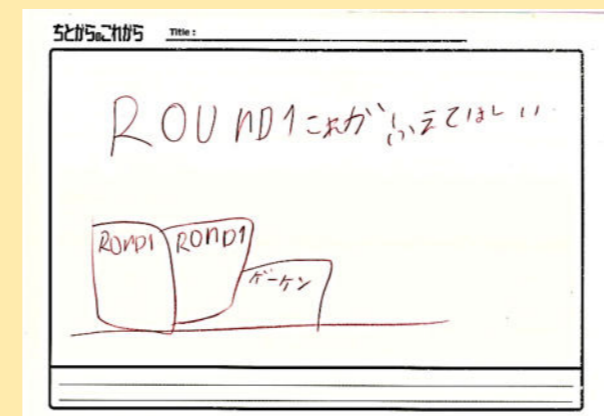 ちとからのこれから Title :
ROUND1これがふえてほしい
ROUND1 ROUND1
ゲーケン